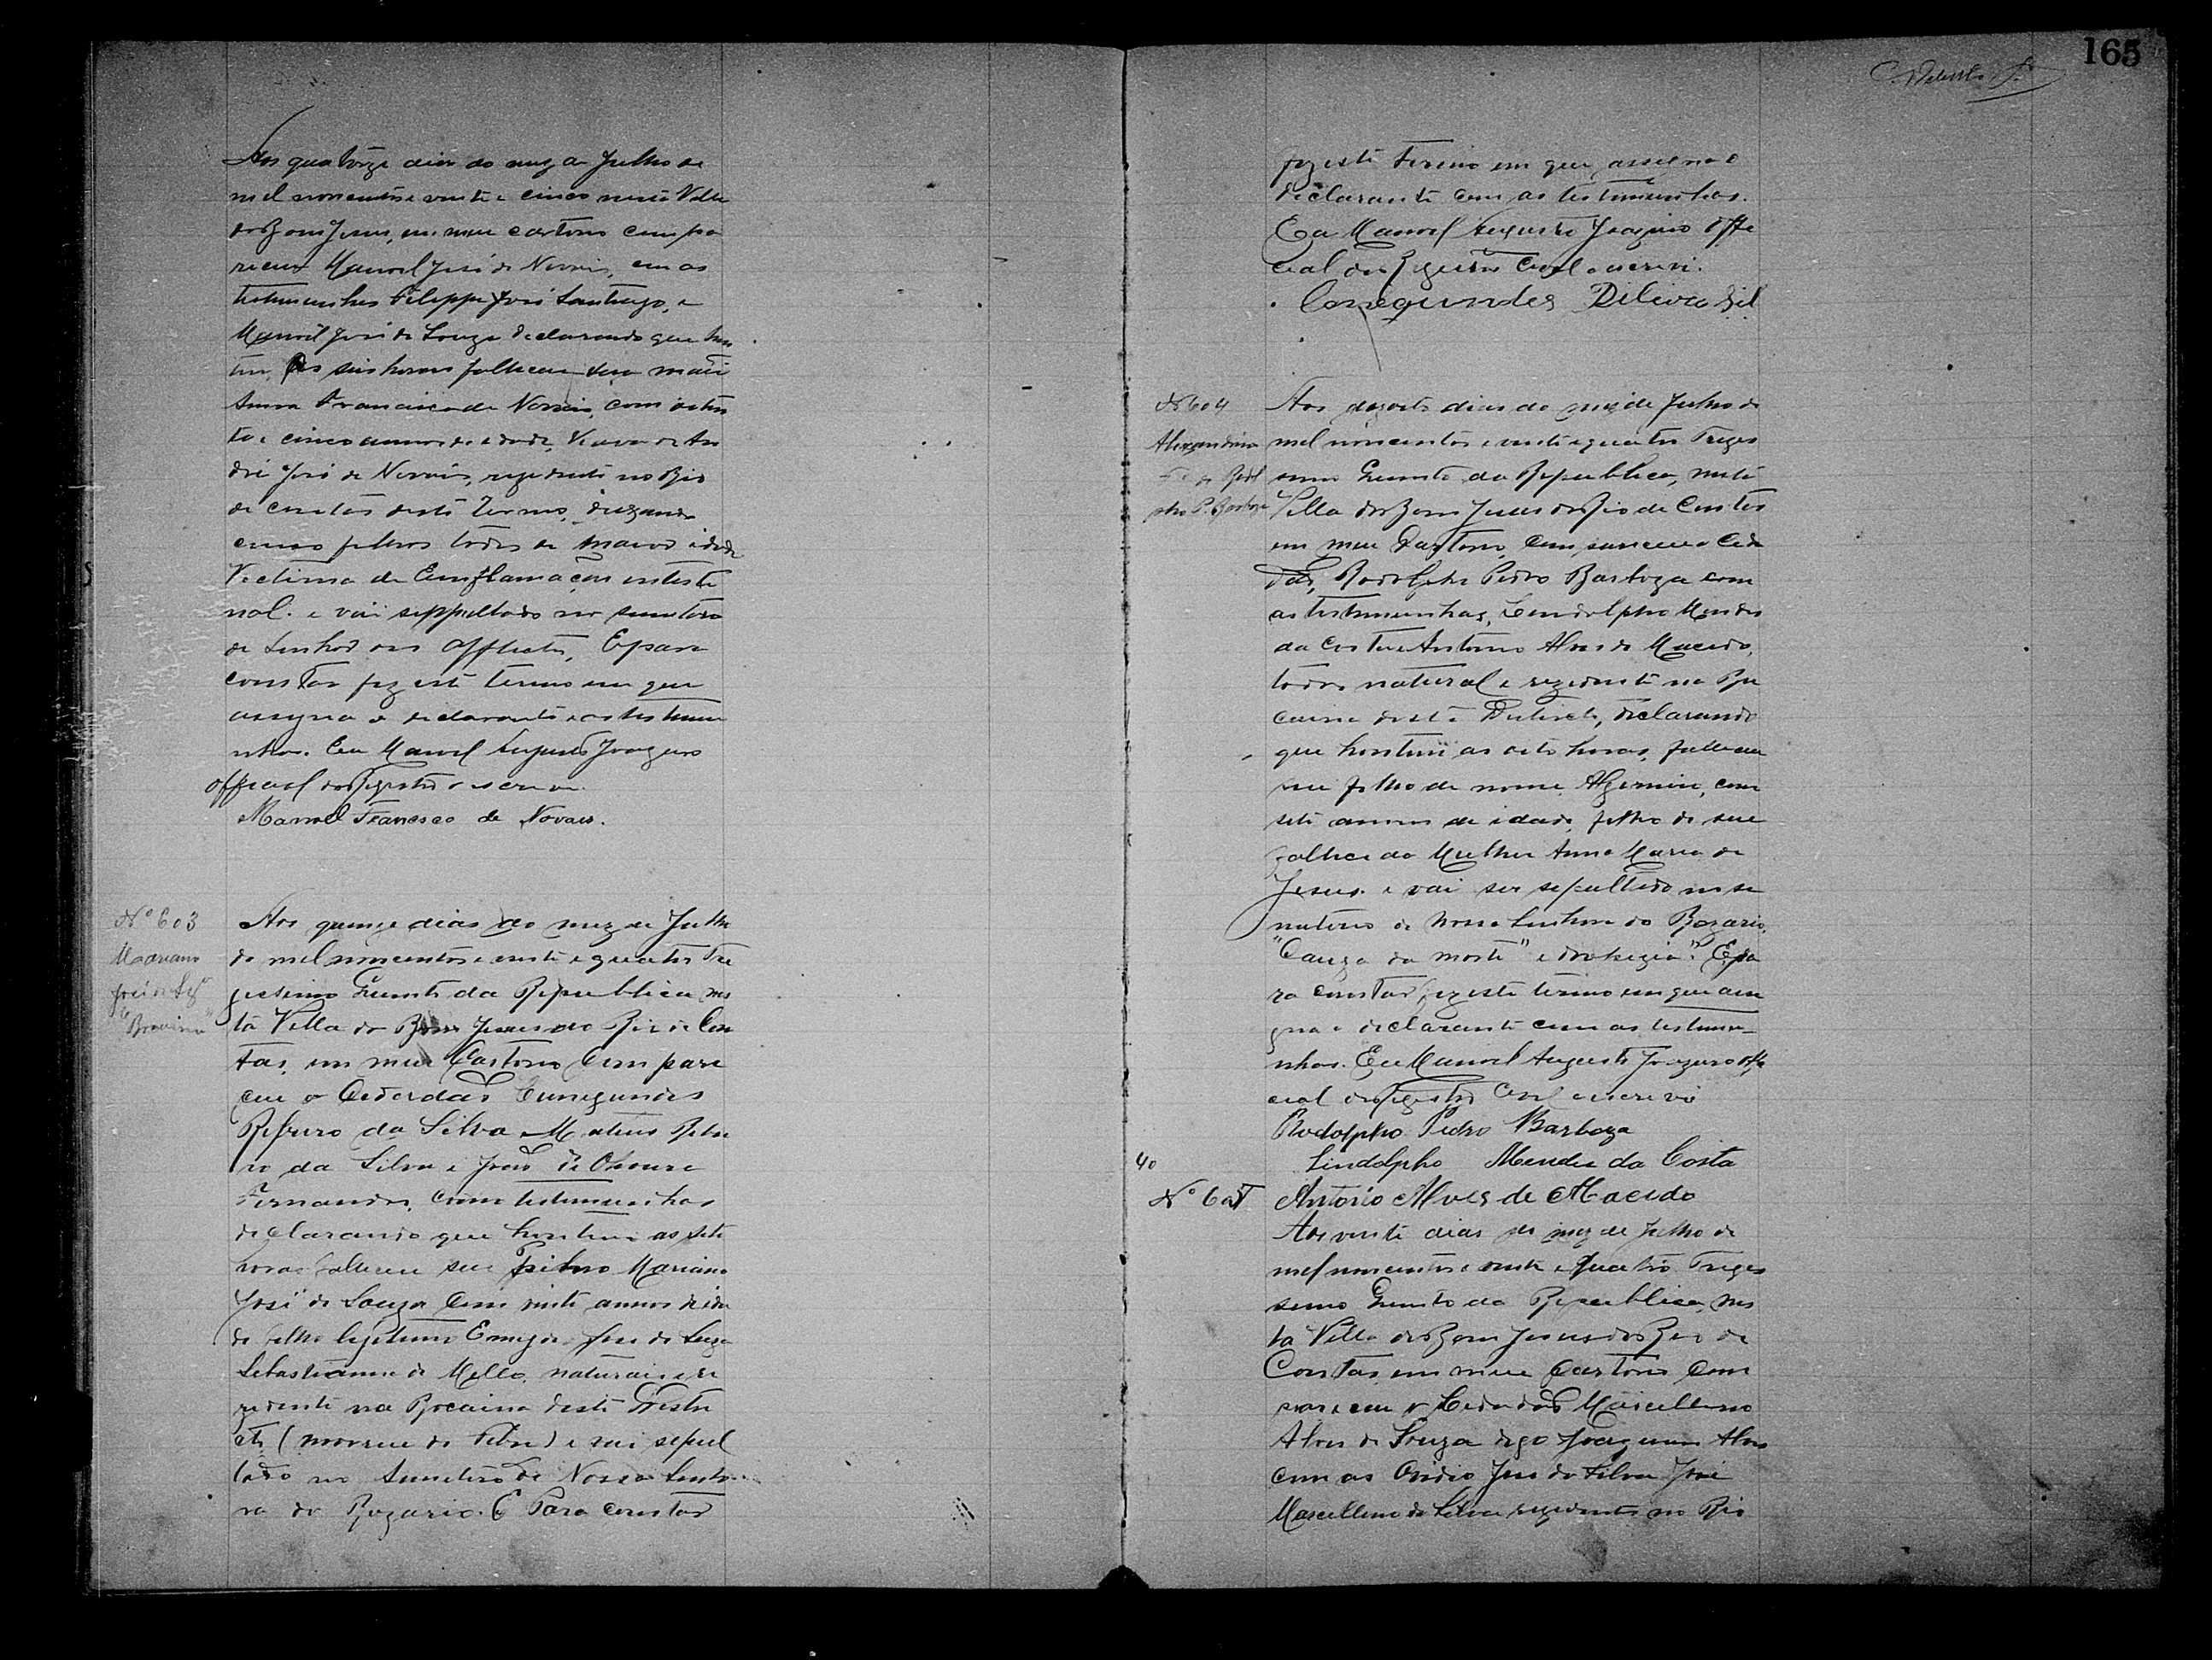 165
Aos quatorze dias do mez de Julho de
mil novecentos e vinte e cinco nesta Villa
do Bom Jesus, em meu cartorio compa
receu Manoel José de Novais, com as
testemunhas Filippe José Santiago, e
Manoel José de Souza declarando que hon
tem as seis horas falleceu sua mãi
Anna Francisca de Novais, com oiten
ta e cinco annos de idade, Viuva de An
dré José de Novais, rezidente no Rio
de Contas deste Termo, deixando
cinco filhos todos de maior idade
Victima de Emflamaçou intesti
nal. e vai seppultado no semiterio
de Senhor dos Afflictos, E para
constar fiz este termo em que
assigna o declarante e as testemu
nhas. Eu Manoel Augusto Joazeiro
official do Registro escrevi.
Manoel Francisco de Novaes.
Nº 603
Mariano
José de Sza
"Brocaina"
Aos quinze dias do mez de Julho
de mil novecentos e vinte e quatro Tre
gesimo Quinto da Republica, nes
ta Villa do Bom Jesus do Rio de Con
tas, em meu Cartorio Compare
ceu o Cidadão Cunegundes
Ribeiro da Silva Mateus Ribei
ro da Silva e João de
Fernandes, como testemunhas
declarando que hontem as sete
horas falleceu seu Mariano
José de Souza com vinte annos de ida
de filho legitimo Emigdio José de Souza
Sebastianna de Mello, naturais e re
zidente na Bocaina deste Destri
cto (morreu de Febre) e vai sepul
tado no Semiterio de Nossa Senho
ra do Rozario. E Para constar
fiz este Termo em que assigna o
declarante com as testemunhas.
Eu Manoel Augusto Joazeiro Offi
cial do Registro Civil o escrevi.
Conegundes Ribeiro Sil
Nº 604
Alexandrina
Fº de Rodol
pho P. Barboza
Aos dezoito dias do mez de Julho de
mil novecentos e vinte e quatro Treges
simo Quinto da Republica, nesta
Villa do Bom Jesus do Rio de Contas
em meu Cartorio, Compareceu o Cida
dão, Rodolpho Pedro Barboza com
as testemunhas, Lendolpho Mendes
da Costa e Antonio Alves de Macedo,
todos natural e rezidente na Bo
caina deste Destricto, declarando
que hontem as oito horas, falleceu
seu filho de nome Algemiro, com
sete annos de idade, filho de sua
fallecida Mulher Anna Maria de
Jesus. e vai ser sepultado no se
miterio de Nossa Senhora do Rozario,
"Cauza da morte" e . E pa
ra constar, fiz este termo em que assi
gna o declarante com as testemu
nhas. Eu Manoel Augusto Joazeiro offi
cial do Registro Civil escrevi
Rodolpho Pedro Barboza
40
Lindolpho Mendes da Costa
Nº 605
Antonio Alves de Macedo
Aos vinte dias do mez de Julho de
mil novecentos e vinte e quatro Treges
simo Quinto da Republica, nes
ta Villa do Bom Jesus do Rio de
Contas, em meu Cartorio Com
pareceu o Cidadão Marcellino
Alves de Souza digo Joaquim Alves
com as Ovidio José da Silva José
Marcellino da Silva rezidente no Rio